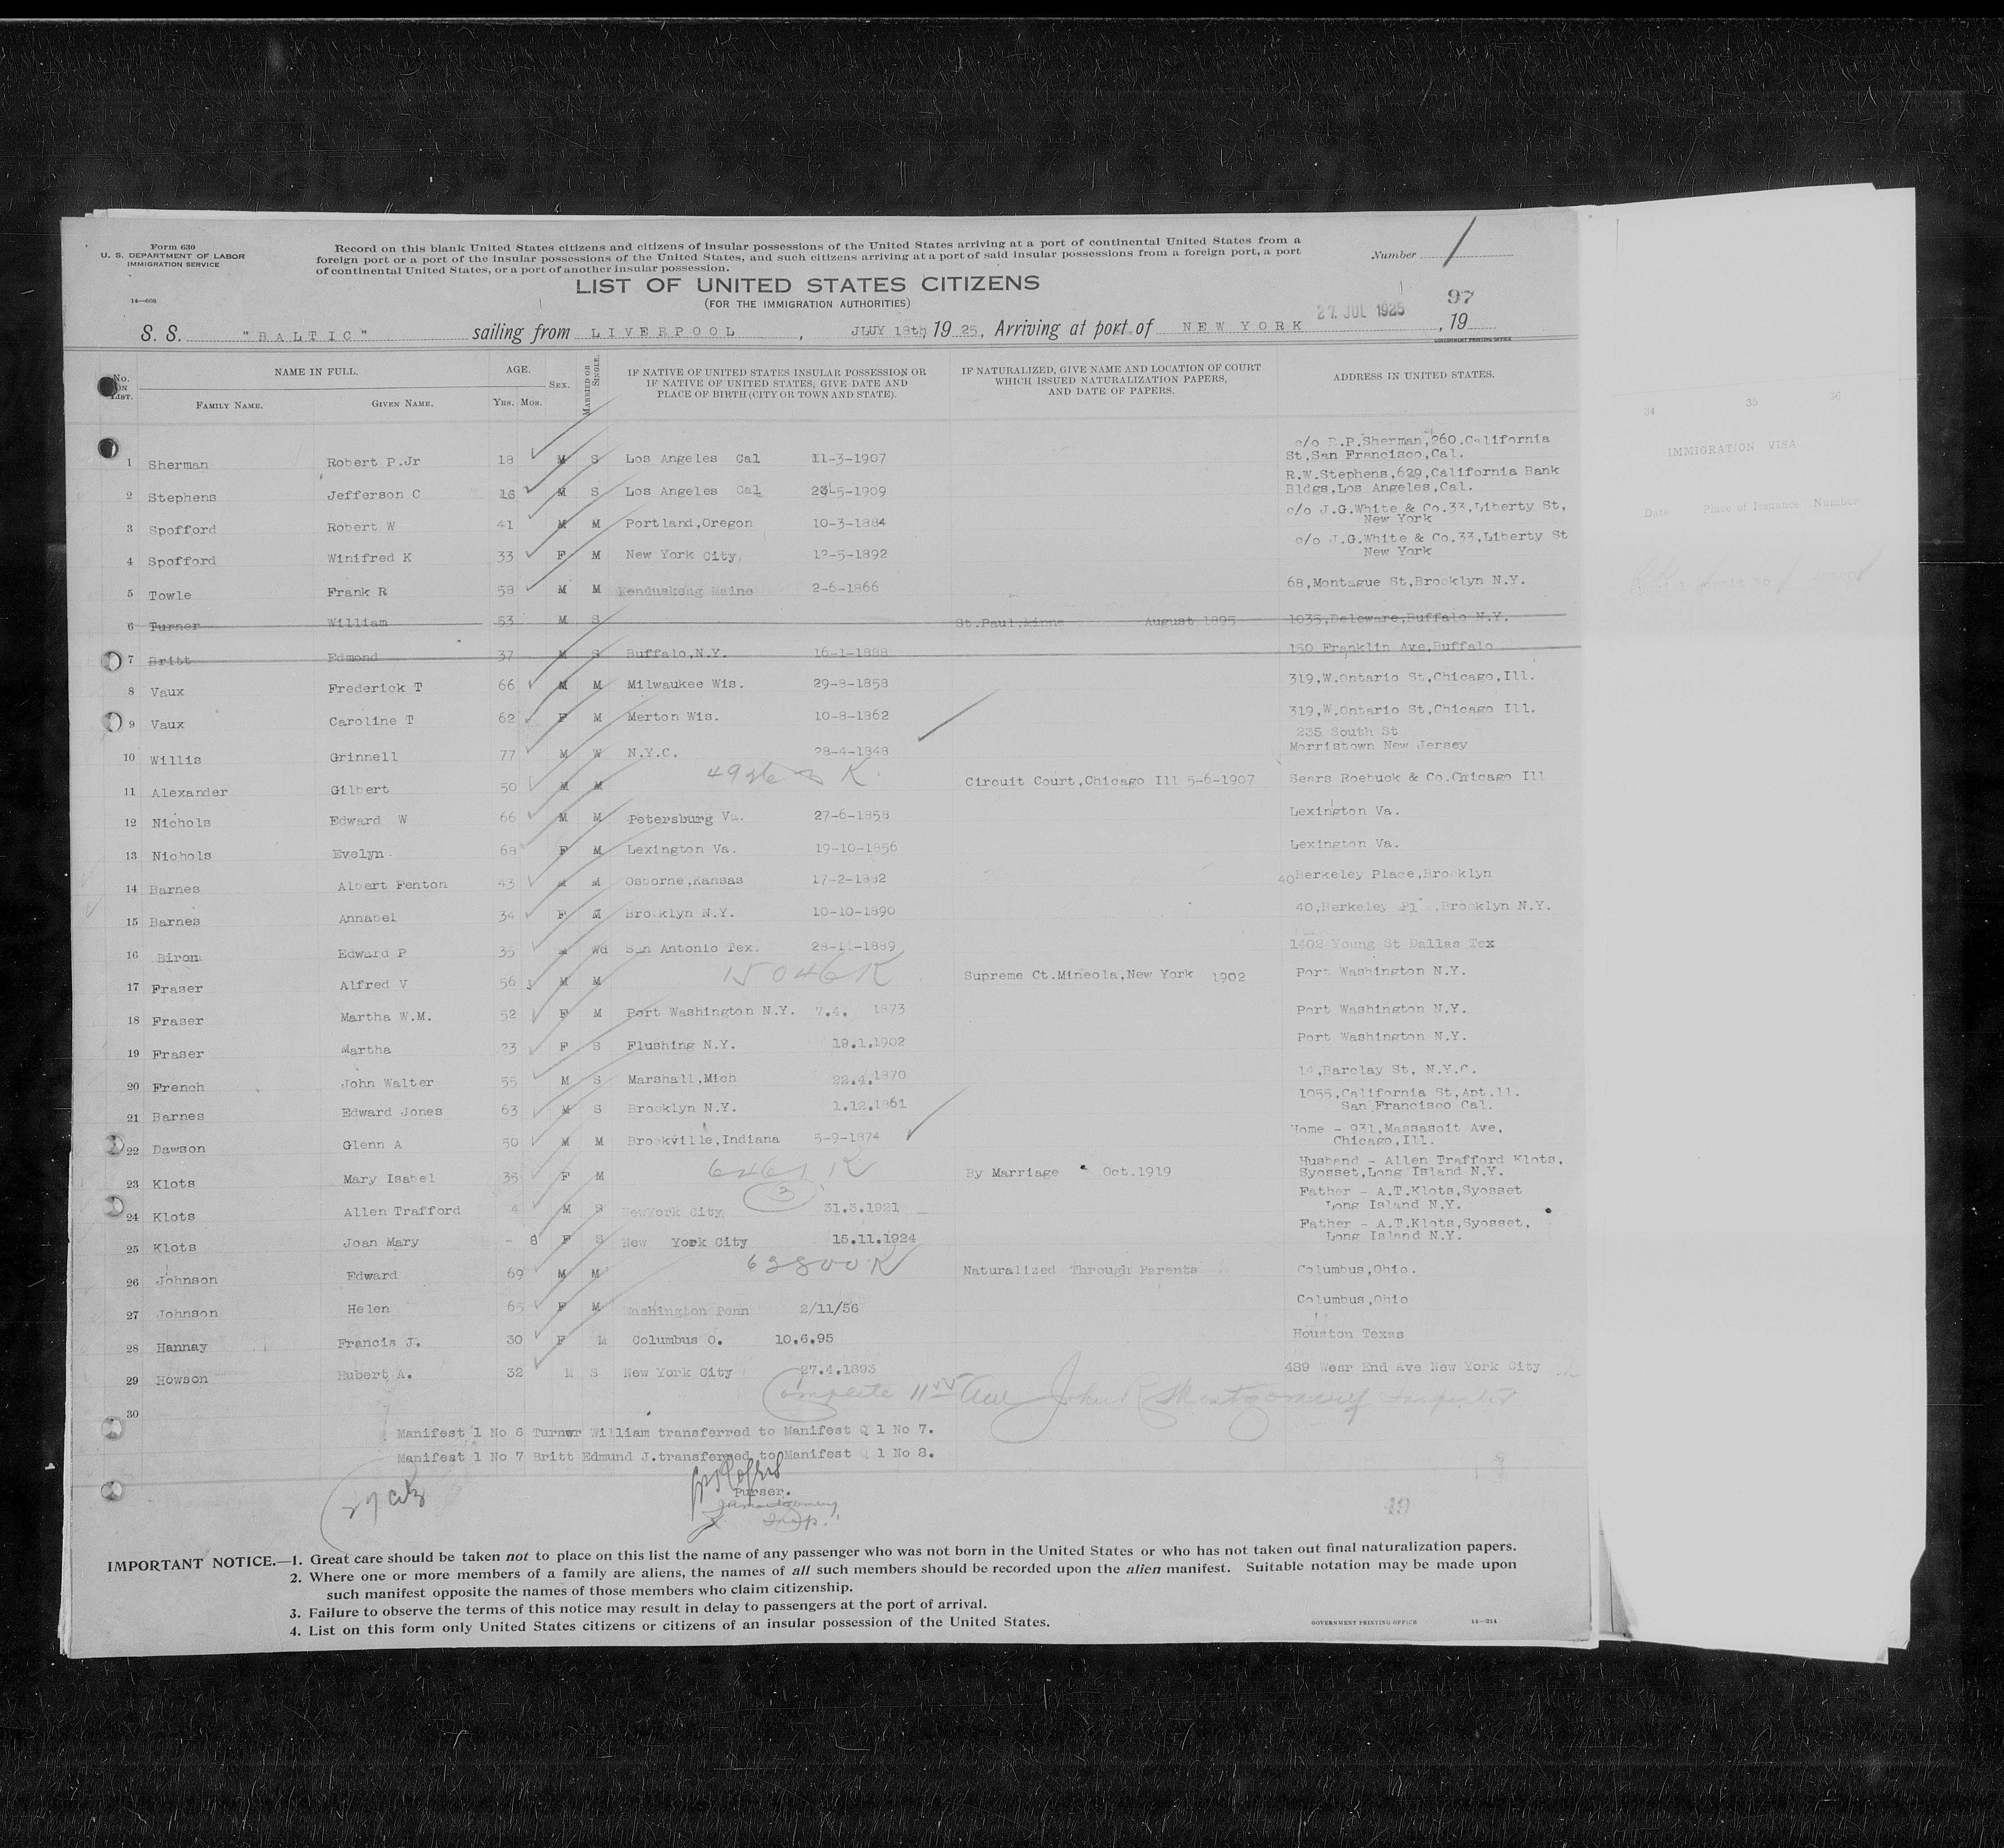 Form 630
U. S. DEPARTMENT OF LABOR
IMMIGRATION SERVICE
14—608
Record on this blank United States citizens and citizens of insular possessions of the United States arriving at a port of continental United States from a
foreign port or a port of the insular possessions of the United States, and such citizens arriving at a port of said insular possessions from a foreign port, a port
of continental United States, or a port of another insular possession.
Number 1
LIST OF UNITED STATES CITIZENS
(FOR THE IMMIGRATION AUTHORITIES)
97
27 JUL 1925
S. S. "BALTIC" sailing from LIVERPOOL, JLUY 18th, 1925, Arriving at port of NEW YORK, 19
GOVERNMENT PRINTING OFFICE
No. ON LIST. NAME IN FULL. FAMILY NAME. GIVEN NAME. AGE. YRS. MOS. SEX. MARRIED OR SINGLE. IF NATIVE OF UNITED STATES INSULAR POSSESSION OR IF NATIVE OF UNITED STATES, GIVE DATE AND PLACE OF BIRTH (CITY OR TOWN AND STATE). IF NATURALIZED, GIVE NAME AND LOCATION OF COURT WHICH ISSUED NATURALIZATION PAPERS, AND DATE OF PAPERS. ADDRESS IN UNITED STATES.
34 35 36
IMMIGRATION VISA
Date Place of Issuance Number
1 Sherman Robert P.Jr 18 M S Los Angeles Cal 11-3-1907 c/o R.P.Sherman,260.California St,San Francisco,Cal.
2 Stephens Jefferson C 16 M S Los Angeles Cal 23-5-1909 R.W.Stephens,629,California Bank Bldgs,Los Angeles,Cal.
3 Spofford Robert W 41 M M Portland,Oregon 10-3-1884 c/o J.G.White & Co.33,Liberty St, New York
4 Spofford Winifred K 33 F M New York City, 12-5-1892 c/o J.G.White & Co.33,Liberty St New York
5 Towle Frank R 58 M M Kenduskeag Maine 2-6-1866 68,Montague St,Brooklyn N.Y.
6 Turner William 53 M S St.Paul,Minne August 1895 1035,Deleware,Buffalo N.Y.
7 Britt Edmond 37 M S Buffalo,N.Y. 16-1-1888 150 Franklin Ave,Buffalo
8 Vaux Frederick T 66 M M Milwaukee Wis. 29-8-1858 319,W.Ontario St,Chicago,Ill.
9 Vaux Caroline T 62 F M Merton Wis. 10-8-1862 319,W.Ontario St,Chicago Ill.
10 Willis Grinnell 77 M W N.Y.C. 28-4-1848 235 South St Morristown New Jersey
11 Alexander Gilbert 50 M M Circuit Court,Chicago Ill 5-6-1907 Sears Roebuck & Co.Chicago Ill
12 Nichols Edward W 66 M M Petersburg Va. 27-6-1858 Lexington Va.
13 Nichols Evelyn 68 F M Lexington Va. 19-10-1856 Lexington Va.
14 Barnes Albert Fenton 43 M M Osborne,Kansas 17-2-1882 40 Berkeley Place,Brooklyn
15 Barnes Annabel 34 F M Brooklyn N.Y. 10-10-1890 40,Berkeley Pl .,Brooklyn N.Y.
16 Biron Edward P 35 M Wd San Antonio Tex. 28-11-1889 1402 Young St Dallas Tex
17 Fraser Alfred V 56 M M 15046 K Supreme Ct.Mineola,New York 1902 Port Washington N.Y.
18 Fraser Martha W.M. 52 F M Port Washington N.Y. 7.4. 1873 Port Washington N.Y.
19 Fraser Martha 23 F S Flushing N.Y. 19.1.1902 Port Washington N.Y.
20 French John Walter 55 M S Marshall,Mich 22.4.1870 14,Barclay St, N.Y.C.
21 Barnes Edward Jones 63 M S Brooklyn N.Y. 1.12.1861 1055,California St,Apt.11. San Francisco Cal.
22 Dawson Glenn A 50 M M Brookville,Indiana 5-9-1874 Home - 931,Massasoit Ave, Chicago,Ill.
23 Klots Mary Isabel 35 F M By Marriage Oct.1919 Husband - Allen Trafford Klots, Syosset,Long Island N.Y.
24 Klots Allen Trafford 4 M S NewYork City 31.3.1921 Father - A.T.Klots,Syosset Long Island N.Y.
3
25 Klots Joan Mary - 8 F S New York City 15.11.1924 Father - A.T.Klots,Syosset, Long Island N.Y.
26 Johnson Edward 69 M M 63800 K Naturalized Through Parents Columbus,Ohio.
27 Johnson Helen 65 F M Washington Penn 2/11/56 Columbus,Ohio
28 Hannay Francis J. 30 F M Columbus O. 10.6.95 Houston Texas
29 Howson Hubert A. 32 M S New York City 27.4.1893 489 Wesr End Ave New York City
30
Complete John R Montgomery Inspector
Manifest 1 No 6 Turner William transferred to Manifest Q 1 No 7.
Manifest 1 No 7 Britt Edmund J.transferred to Manifest Q 1 No 8.
Purser.
JRMontgomery
Insp.
27 citz
49
IMPORTANT NOTICE.—1. Great care should be taken not to place on this list the name of any passenger who was not born in the United States or who has not taken out final naturalization papers.
2. Where one or more members of a family are aliens, the names of all such members should be recorded upon the alien manifest. Suitable notation may be made upon
such manifest opposite the names of those members who claim citizenship.
3. Failure to observe the terms of this notice may result in delay to passengers at the port of arrival.
4. List on this form only United States citizens or citizens of an insular possession of the United States.
GOVERNMENT PRINTING OFFICE 14—214